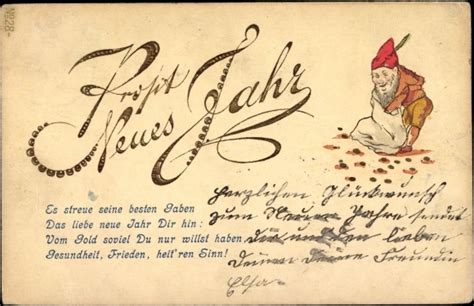 №28-
Prosit
Neues Jahr
Es streue seine besten Gaben
Das liebe neue Jahr Dir hin:
Vom Gold soviel Du nur willst haben,
Gesundheit, Frieden, heit'ren Sinn!
Herzlichen Glückwunsch
zum Neuen Jahre sendet
Dir und den lieben
Deinen Deine Freundin
Elsa